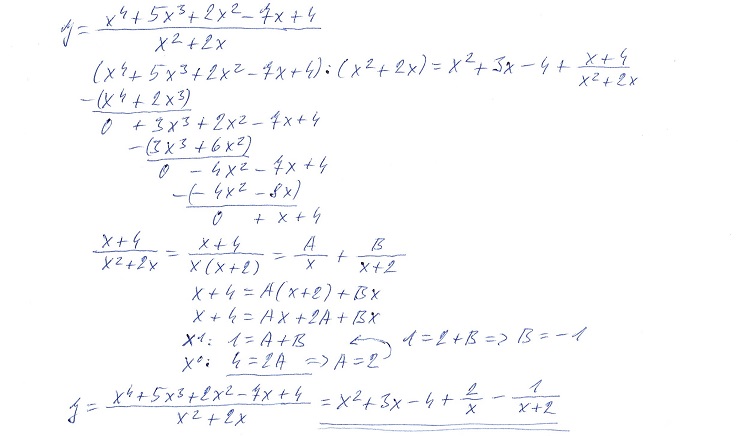 y = (x⁴ + 5x³ + 2x² - 7x + 4) / (x² + 2x)
(x⁴ + 5x³ + 2x² - 7x + 4) : (x² + 2x) = x² + 3x - 4 + (x + 4) / (x² + 2x)
-(x⁴ + 2x³)
0 + 3x³ + 2x² - 7x + 4
-(3x³ + 6x²)
0 - 4x² - 7x + 4
-(-4x² - 8x)
0 + x + 4
(x + 4) / (x² + 2x) = (x + 4) / (x(x + 2)) = A / x + B / (x + 2)
x + 4 = A(x + 2) + Bx
x + 4 = Ax + 2A + Bx
x¹: 1 = A + B ← 1 = 2 + B => B = -1
x⁰: 4 = 2A => A = 2
y = (x⁴ + 5x³ + 2x² - 7x + 4) / (x² + 2x) = x² + 3x - 4 + 2 / x - 1 / (x + 2)